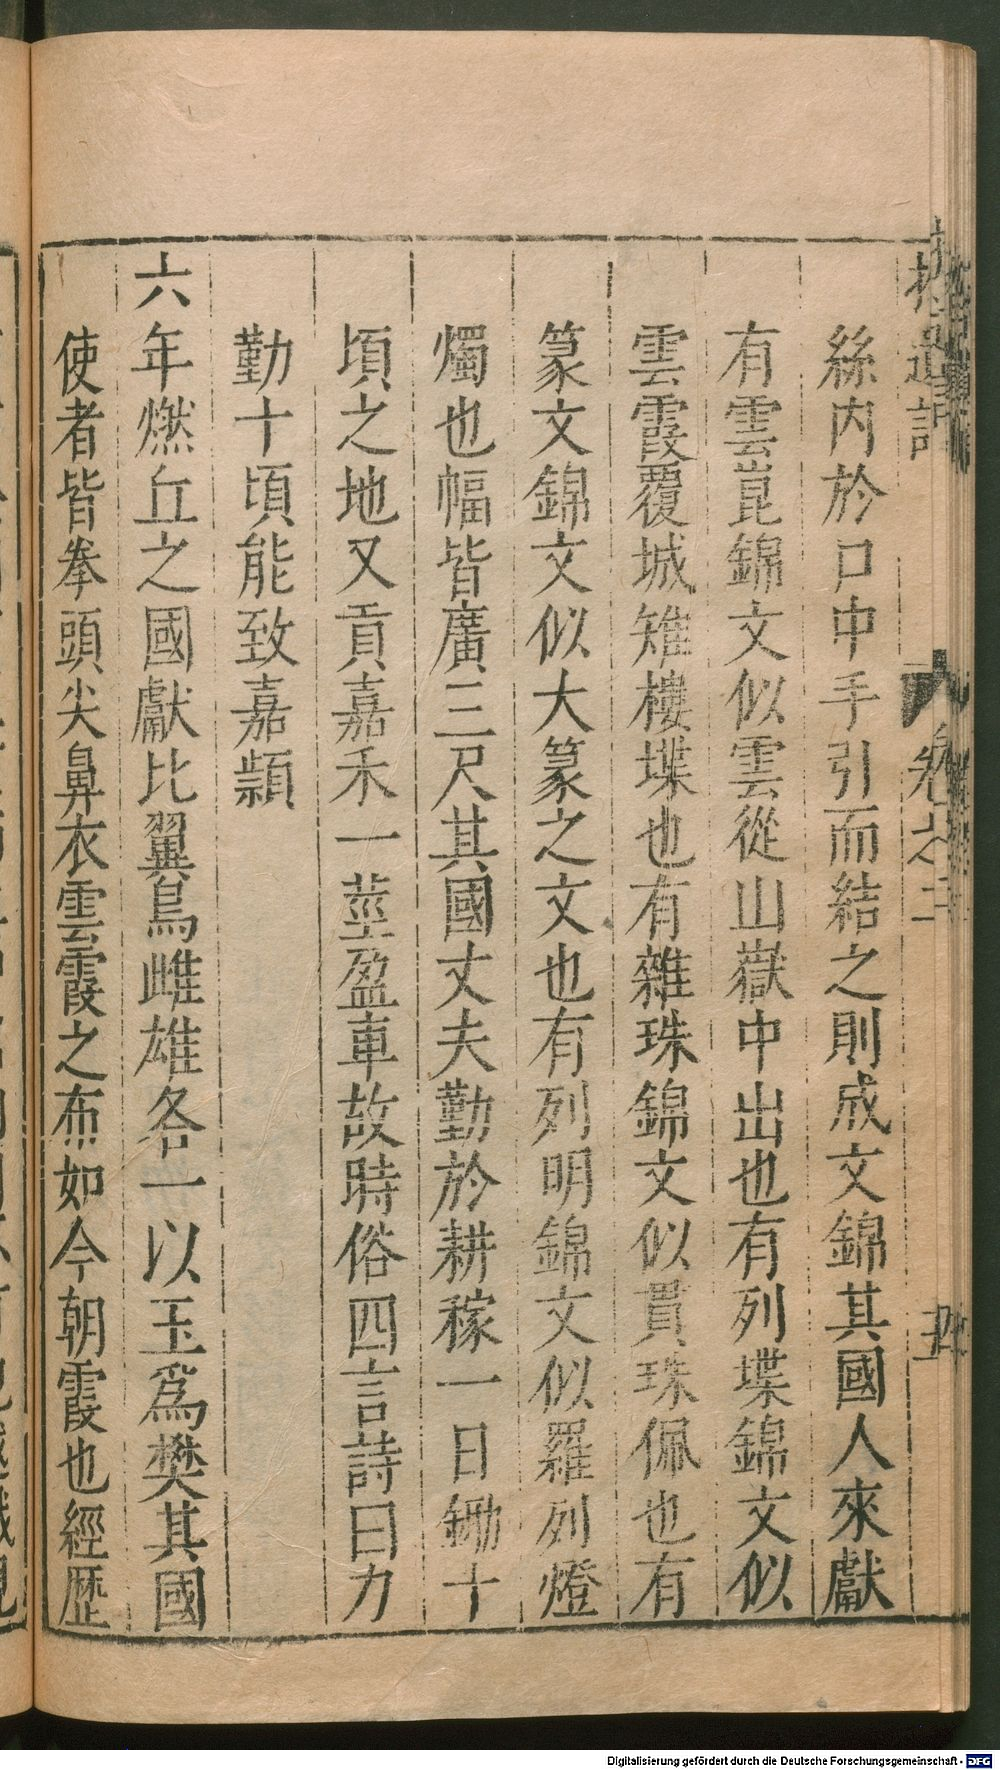 拾遺記
卷之二
五
絲內於口中手引而結之則成文錦其國人來獻
有雲崑錦文似雲從山嶽中出也有列堞錦文似
雲霞覆城雉樓堞也有雜珠錦文似貫珠佩也有
篆文錦文似大篆之文也有列明錦文似羅列燈
燭也幅皆廣三尺其國丈夫勤於耕稼一日鋤十
頃之地又貢嘉禾一莖盈車故時俗四言詩曰力
勤十頃能致嘉穎
六年燃丘之國獻比翼鳥雌雄各一以玉爲樊其國
使者皆拳頭尖鼻衣雲霞之布如今朝霞也經歷
Digitalisierung gefördert durch die Deutsche Forschungsgemeinschaft - DFG